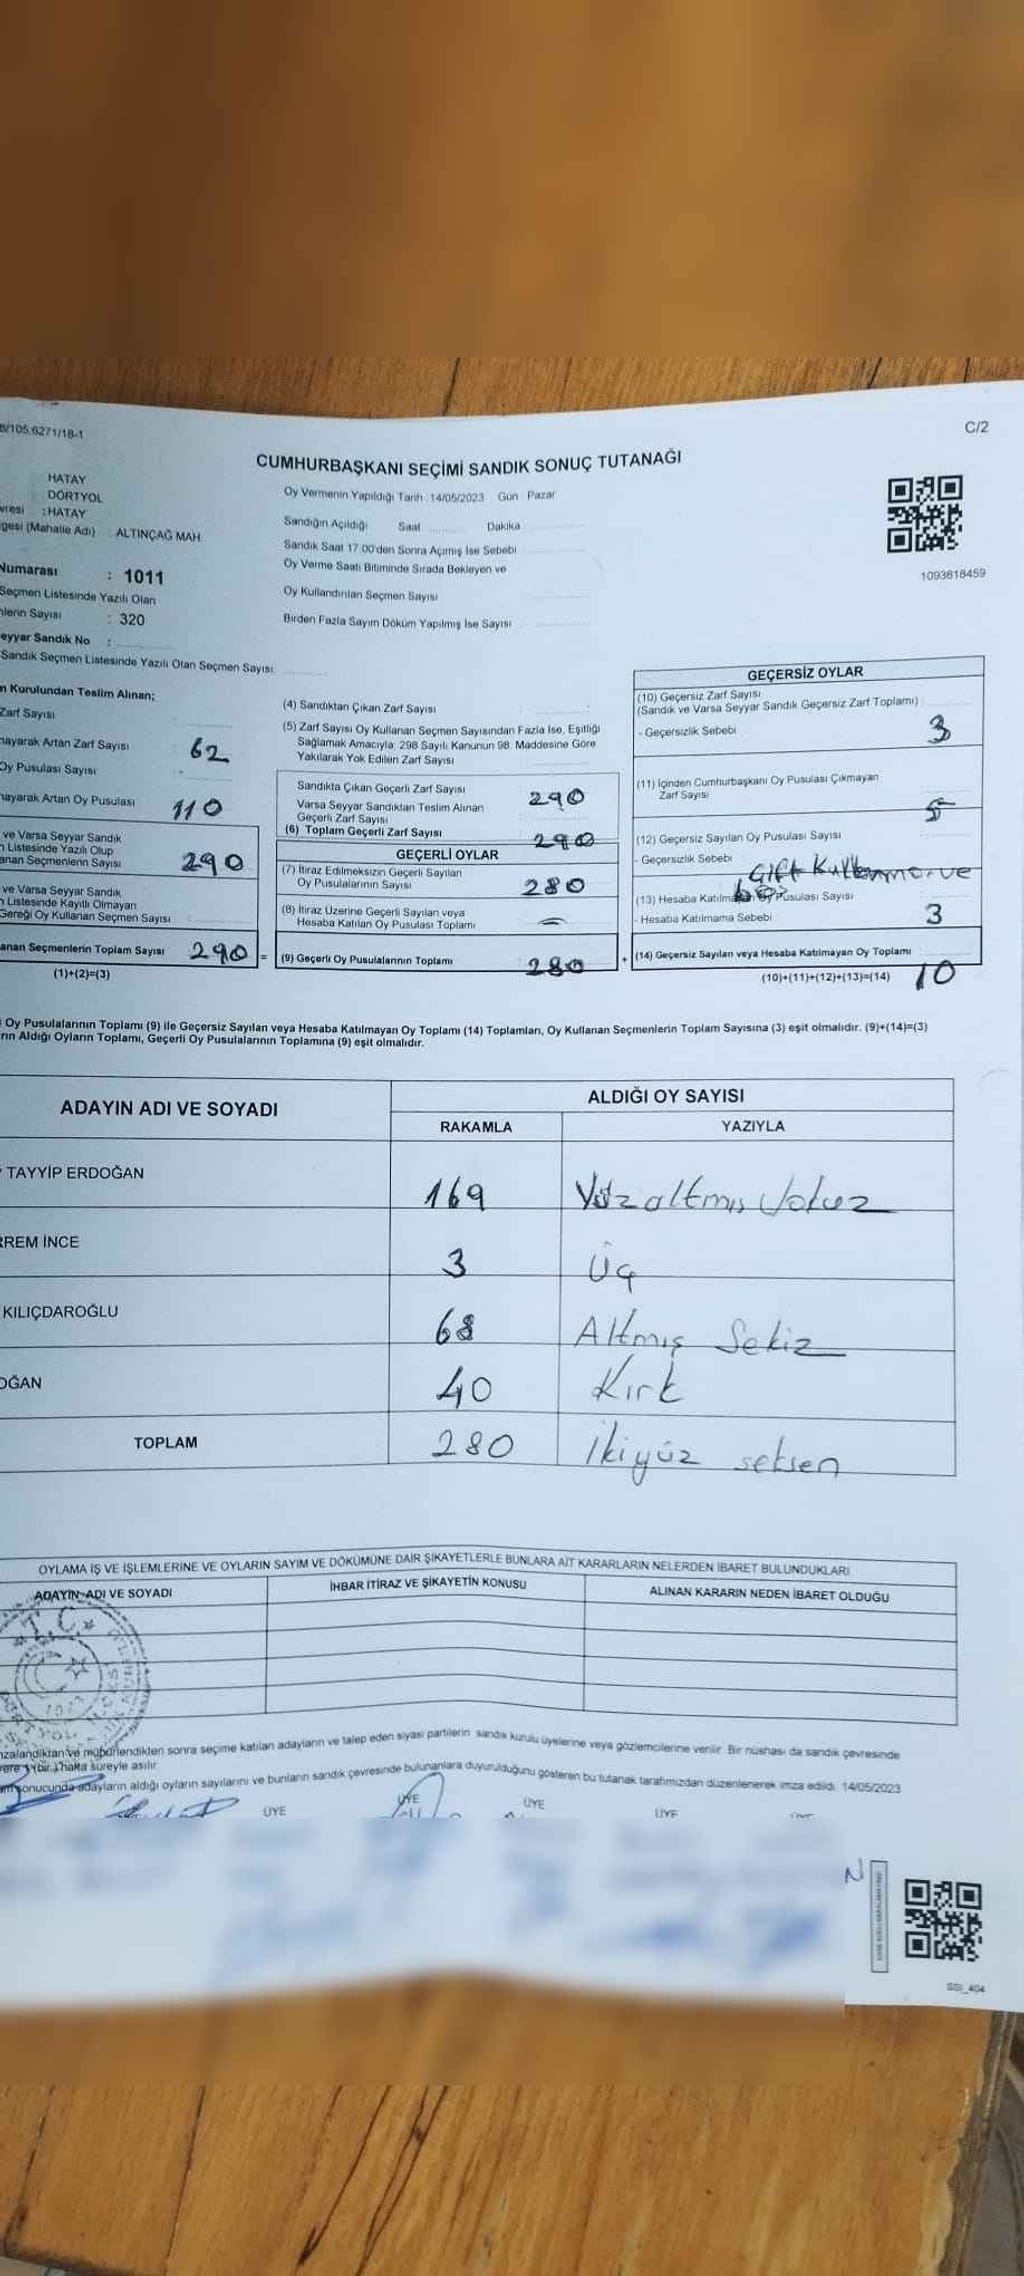 B/105.6271/18-1
C/2
CUMHURBAŞKANI SEÇİMİ SANDIK SONUÇ TUTANAĞI
HATAY
DÖRTYOL
vresi : HATAY
gesi (Mahalle Adı) : ALTINÇAĞ MAH.
Numarası : 1011
Seçmen Listesinde Yazılı Olan
nlerin Sayısı : 320
eyyar Sandık No :
Sandık Seçmen Listesinde Yazılı Olan Seçmen Sayısı:
Oy Vermenin Yapıldığı Tarih :14/05/2023 Gün : Pazar
Sandığın Açıldığı Saat Dakika
Sandık Saat 17.00'den Sonra Açılmış İse Sebebi
Oy Verme Saati Bitiminde Sırada Bekleyen ve
Oy Kullandırılan Seçmen Sayısı
Birden Fazla Sayım Döküm Yapılmış İse Sayısı
1093818459
n Kurulundan Teslim Alınan;
Zarf Sayısı
nayarak Artan Zarf Sayısı 62
Oy Pusulası Sayısı
nayarak Artan Oy Pusulası 110
ve Varsa Seyyar Sandık
n Listesinde Yazılı Olup
anan Seçmenlerin Sayısı 290
ve Varsa Seyyar Sandık
n Listesinde Kayıtlı Olmayan
Gereği Oy Kullanan Seçmen Sayısı
anan Seçmenlerin Toplam Sayısı 290 =
(1)+(2)=(3)
(4) Sandıktan Çıkan Zarf Sayısı
(5) Zarf Sayısı Oy Kullanan Seçmen Sayısından Fazla İse, Eşitliği
Sağlamak Amacıyla, 298 Sayılı Kanunun 98. Maddesine Göre
Yakılarak Yok Edilen Zarf Sayısı
Sandıkta Çıkan Geçerli Zarf Sayısı 290
Varsa Seyyar Sandıktan Teslim Alınan
Geçerli Zarf Sayısı
(6) Toplam Geçerli Zarf Sayısı 290
GEÇERLİ OYLAR
(7) İtiraz Edilmeksizin Geçerli Sayılan
Oy Pusulalarının Sayısı 280
(8) İtiraz Üzerine Geçerli Sayılan veya
Hesaba Katılan Oy Pusulası Toplamı –
(9) Geçerli Oy Pusulalarının Toplamı 280 +
GEÇERSİZ OYLAR
(10) Geçersiz Zarf Sayısı
(Sandık ve Varsa Seyyar Sandık Geçersiz Zarf Toplamı)
- Geçersizlik Sebebi 3
(11) İçinden Cumhurbaşkanı Oy Pusulası Çıkmayan
Zarf Sayısı
(12) Geçersiz Sayılan Oy Pusulası Sayısı
- Geçersizlik Sebebi Gift ve
(13) Hesaba Katılmayan Oy Pusulası Sayısı
- Hesaba Katılmama Sebebi 3
(14) Geçersiz Sayılan veya Hesaba Katılmayan Oy Toplamı 10
(10)+(11)+(12)+(13)=(14)
Oy Pusulalarının Toplamı (9) ile Geçersiz Sayılan veya Hesaba Katılmayan Oy Toplamı (14) Toplamları, Oy Kullanan Seçmenlerin Toplam Sayısına (3) eşit olmalıdır. (9)+(14)=(3)
rın Aldığı Oyların Toplamı, Geçerli Oy Pusulalarının Toplamına (9) eşit olmalıdır.
ADAYIN ADI VE SOYADI ALDIĞI OY SAYISI
RAKAMLA YAZIYLA
TAYYİP ERDOĞAN 169 Yüzaltmış dokuz
RREM İNCE 3 Üç
KILIÇDAROĞLU 68 Altmış Sekiz
OĞAN 40 Kırk
TOPLAM 280 İkiyüz seksen
OYLAMA İŞ VE İŞLEMLERİNE VE OYLARIN SAYIM VE DÖKÜMÜNE DAİR ŞİKAYETLERLE BUNLARA AİT KARARLARIN NELERDEN İBARET BULUNDUKLARI
ADAYIN ADI VE SOYADI İHBAR İTİRAZ VE ŞİKAYETİN KONUSU ALINAN KARARIN NEDEN İBARET OLDUĞU
T.C.
nzalandıktan ve mühürlendikten sonra seçime katılan adayların ve talep eden siyasi partilerin sandık kurulu üyelerine veya gözlemcilerine verilir. Bir nüshası da sandık çevresinde
yere 1 (bir) hafta süreyle asılır.
sonucunda adayların aldığı oyların sayılarını ve bunların sandık çevresinde bulunanlara duyurulduğunu gösteren bu tutanak tarafımızdan düzenlenerek imza edildi. 14/05/2023
ÜYE ÜYE ÜYE ÜYE
N
SSI_404